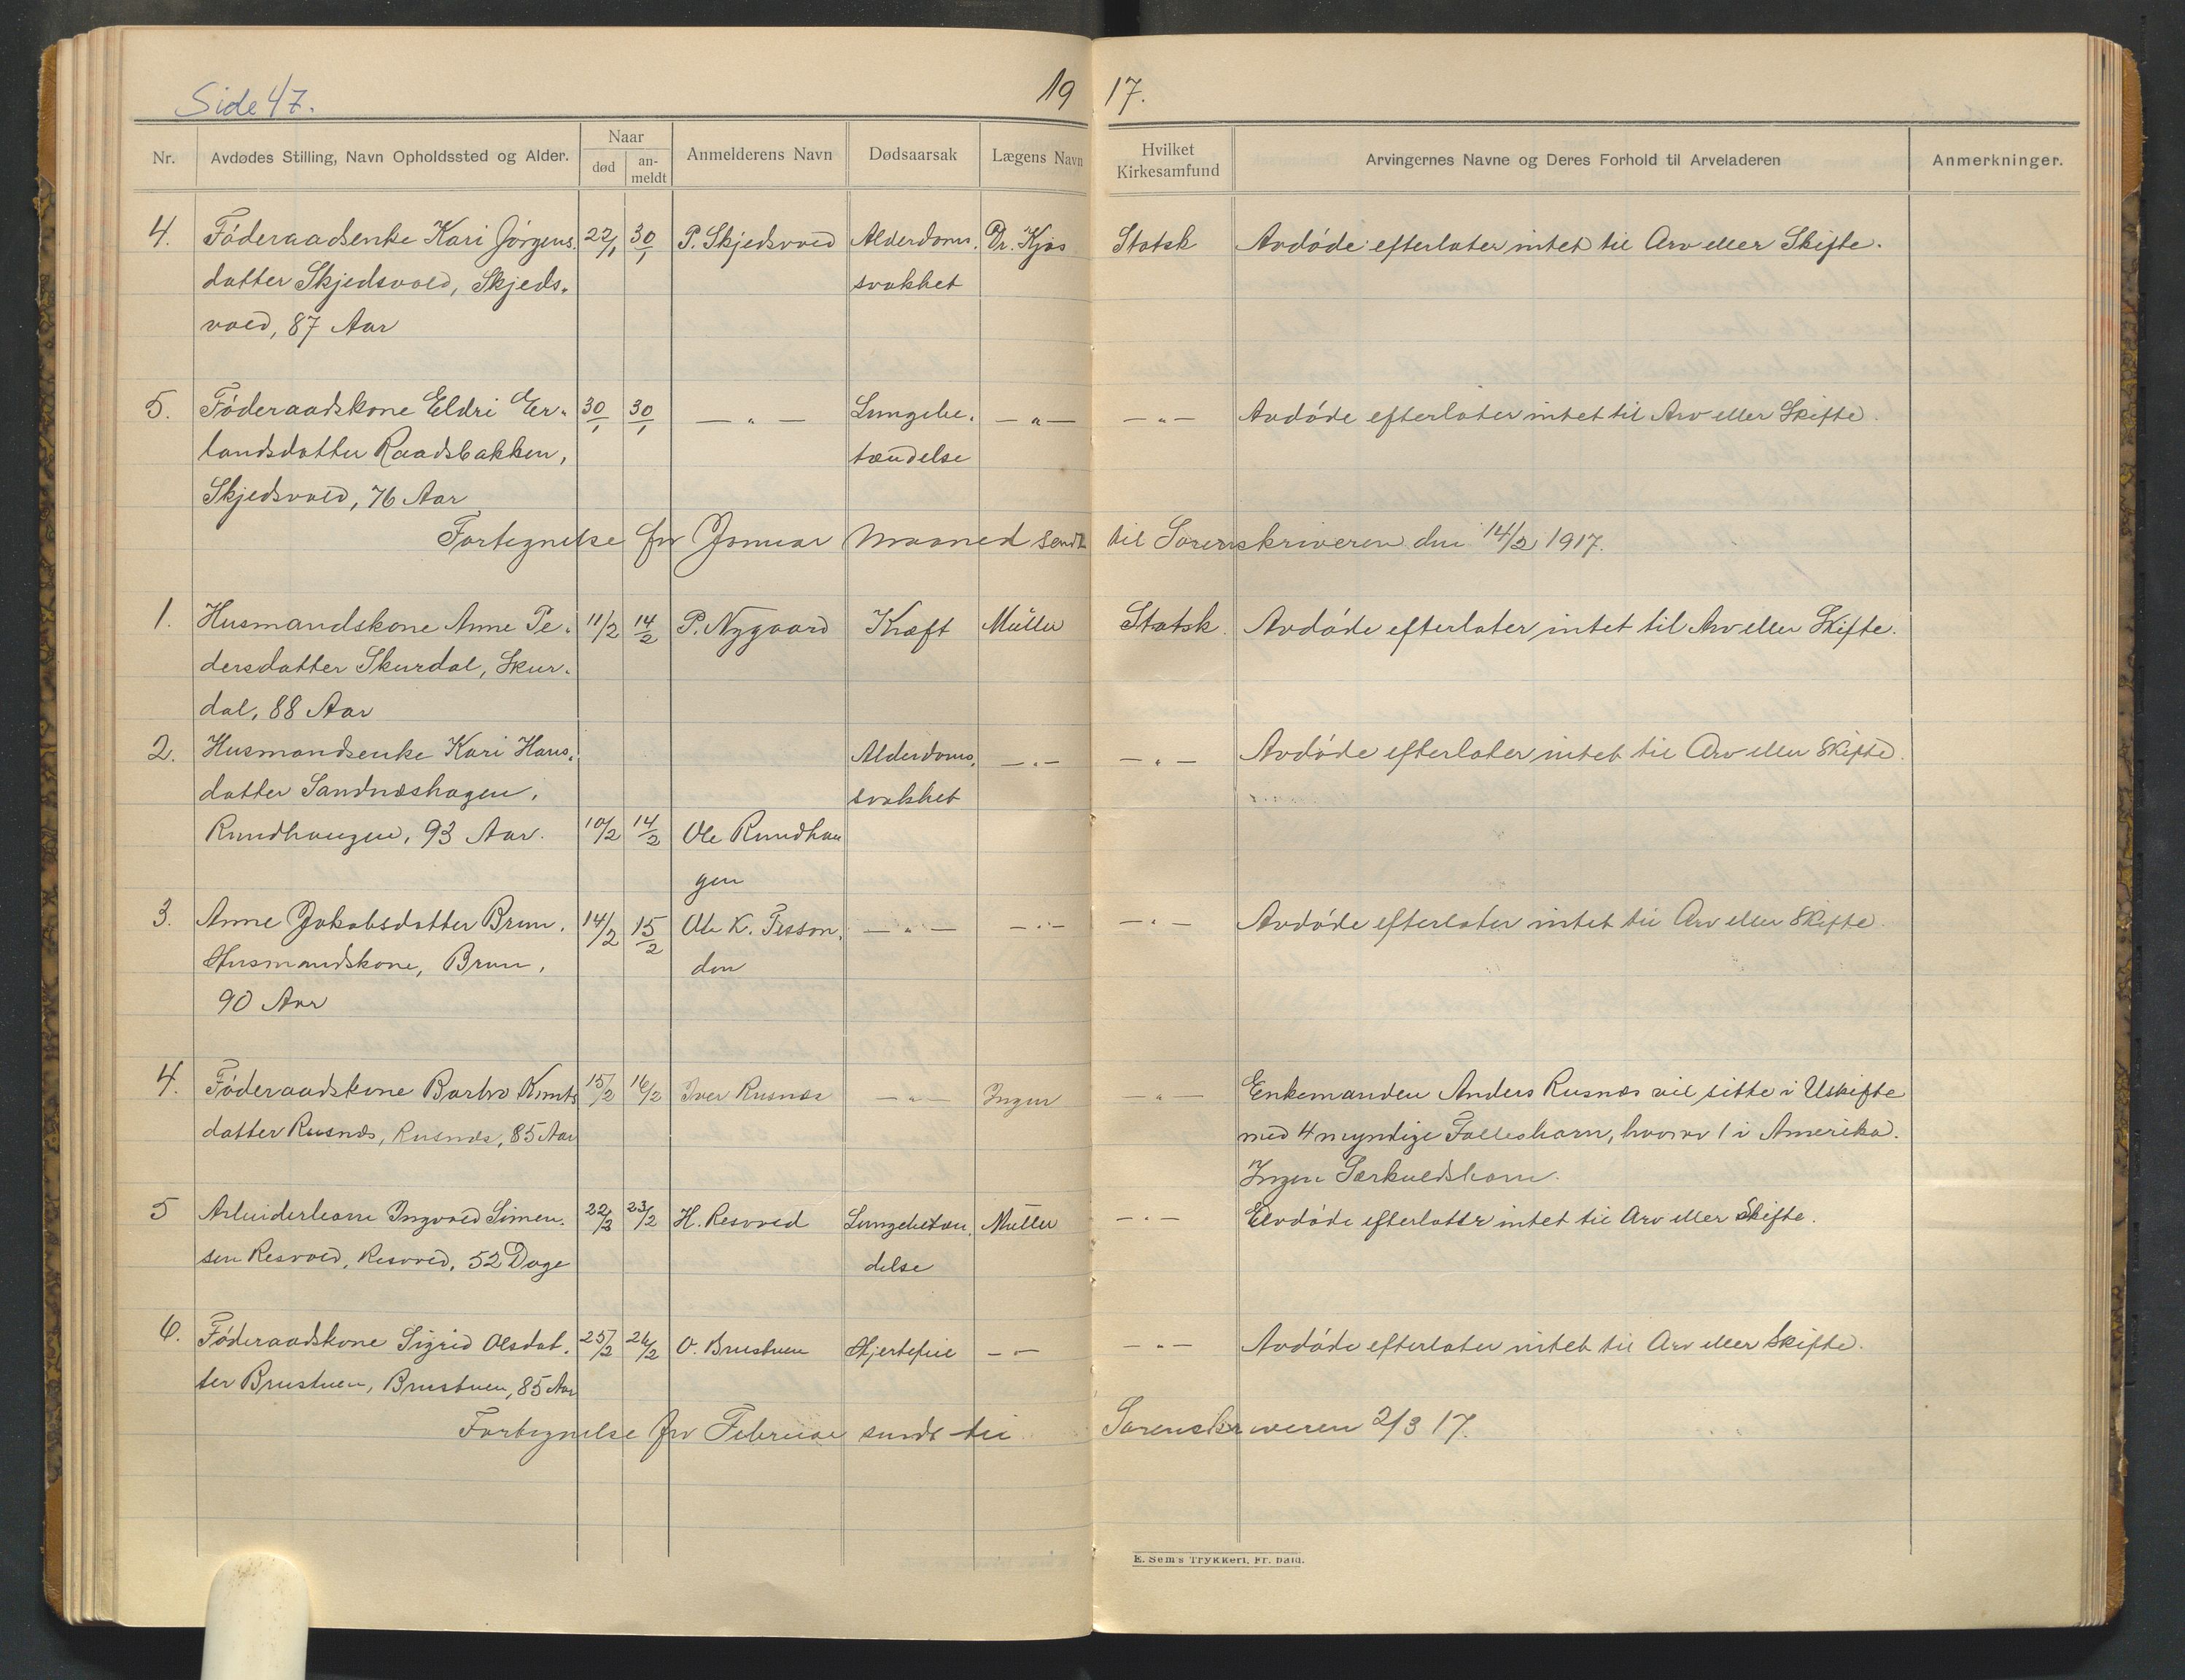 Side 47.
19 17.
Nr. Avdødes Stilling, Navn Opholdssted og Alder. Naar død an-meldt Anmelderens Navn Dødsaarsak Lægens Navn Hvilket Kirkesamfund Arvingernes Navne og Deres Forhold til Arveladeren Anmerkninger.
4. Föderaadsenke Kari Jörgens- 22/1 30/1 P. Skjedsvold Alderdoms- Dr. Kjos Statsk Avdöde efterlater intet til Arv eller Skifte.
datter Skjedsvold, Skjeds- svakhet
vold, 87 Aar
5. Föderaadskone Eldri Er- 30/1 30/1 — " — Lungebe- — " — — " — Avdöde efterlater intet til Arv eller Skifte.
landsdatter Raadsbakken, tændelse
Skjedsvold, 76 Aar
Fortegnelse for Januar Maaned sendt til Sorenskriveren den 14/2 1917.
1. Husmandskone Anne Pe- 11/2 14/2 P. Nygaard Kræft Müller Statsk. Avdöde efterlater intet til Arv eller Skifte.
dersdatter Skurdal, Skur-
dal, 88 Aar
2. Husmandsenke Kari Hans- Alderdoms- — " — — " — Avdöde efterlater intet til Arv eller Skifte.
datter Sandnæshagen, svakhet
Rundhaugen, 93 Aar. 10/2 14/2 Ole Rundhau
gen
3. Anne Jakobsdatter Brun, 14/2 15/2 Ole K. Tesson- — " — — " — — " — Avdöde efterlater intet til Arv eller Skifte.
Husmandskone, Brun, den
90 Aar
4. Föderaadskone Barbro Knuts 15/2 16/2 Iver Rusnæs — " — Ingen — " — Enkemanden Anders Rusnæs vil sitte i Uskifte
datter Rusnæs, Rusnæs, 85 Aar med 4 myndige Fællesbarn, hvorav 1 i Amerika.
Ingen Særkuldsbarn.
5 Arbeiderbarn Ingvald Simen- 22/2 23/2 H. Resvold Lungebetæn- Müller — " — Avdöde efterlater intet til Arv eller Skifte.
sen Resvold, Resvold, 52 Dage delse
6. Föderaadskone Sigrid Olsdat- 25/2 26/2 O. Brustuen Hjertefeil — " — — " — Avdöde efterlater intet til Arv eller Skifte.
ter Brustuen, Brustuen, 85 Aar
Fortegnelse for Februar sendt til Sorenskriveren 2/3 17.
E. Sem's Trykkeri, Fr. hald.